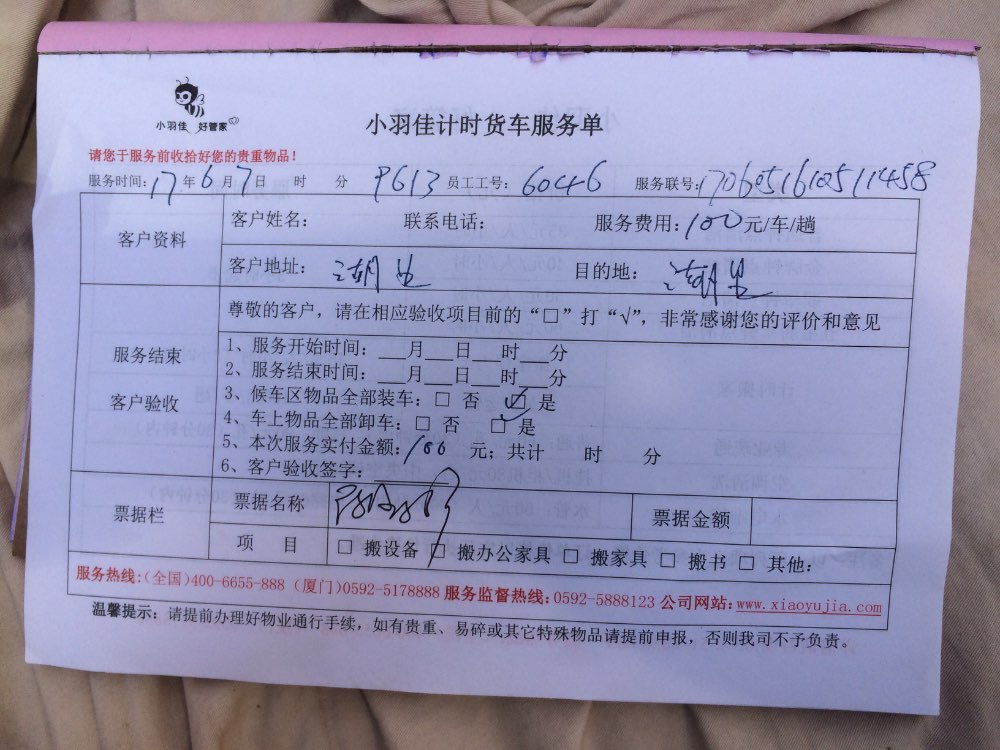 小羽佳 好管家
小羽佳计时货车服务单
请您于服务前收拾好您的贵重物品！
服务时间：17年6月7日 时 分 P613 员工工号：6046 服务联号：1706051610511458
客户资料
客户姓名： 联系电话： 服务费用：100元/车/趟
客户地址：湖里 目的地：湖里
服务结束
客户验收
尊敬的客户，请在相应验收项目前的“□”打“√”，非常感谢您的评价和意见
1、服务开始时间：___月___日___时___分
2、服务结束时间：___月___日___时___分
3、候车区物品全部装车：□ 否 ☑ 是
4、车上物品全部卸车：□ 否 ☑ 是
5、本次服务实付金额：100 元；共计 时 分
6、客户验收签字：
票据栏
票据名称 票据金额
项 目 □ 搬设备 □ 搬办公家具 □ 搬家具 □ 搬书 □ 其他：
服务热线：(全国)400-6655-888 (厦门)0592-5178888 服务监督热线：0592-5888123 公司网站：www.xiaoyujia.com
温馨提示：请提前办理好物业通行手续，如有贵重、易碎或其它特殊物品请提前申报，否则我司不予负责。